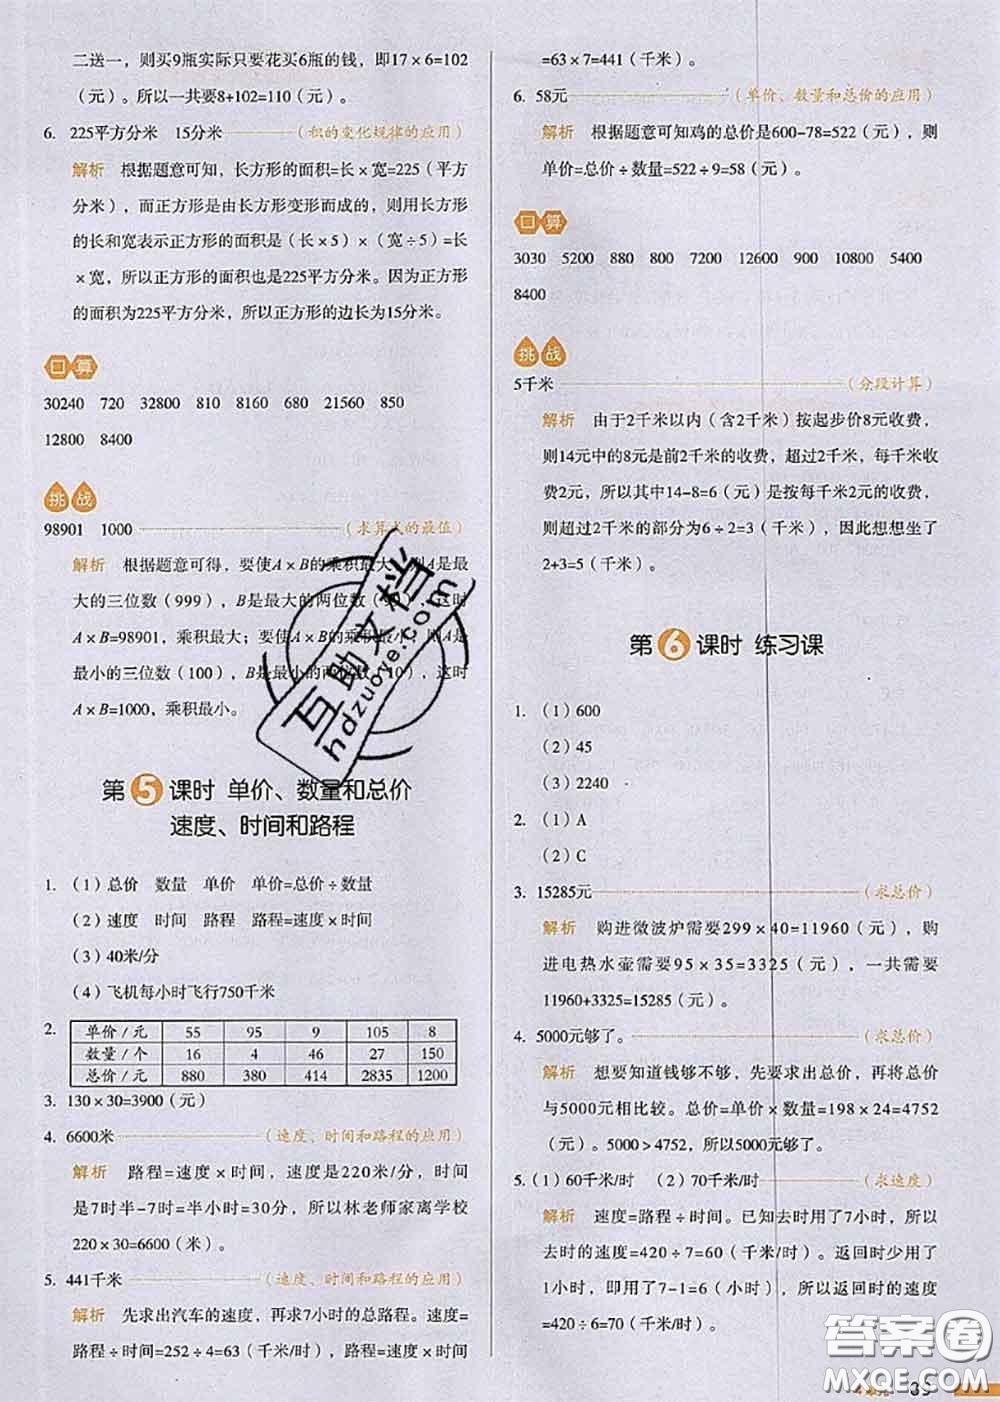 二送一，则买9瓶实际只要花买6瓶的钱，即17×6=102
（元）。所以一共要8+102=110（元）。
6. 225平方分米 15分米（积的变化规律的应用）
解析 根据题意可知，长方形的面积=长×宽=225（平方
分米），而正方形是由长方形变形而成的，则用长方形
的长和宽表示正方形的面积是（长×5）×（宽÷5）=长
×宽，所以正方形的面积也是225平方分米。因为正方形
的面积为225平方分米，所以正方形的边长为15分米。
口算
30240 720 32800 810 8160 680 21560 850
12800 8400
挑战
98901 1000（求算式的最值）
解析 根据题意可得，要使A×B的乘积最大，则A是最
大的三位数（999），B是最大的两位数（99），这时
A×B=98901，乘积最大；要使A×B的乘积最小，则A是
最小的三位数（100），B是最小的两位数（10），这时
A×B=1000，乘积最小。
第5课时 单价、数量和总价
速度、时间和路程
1. （1）总价 数量 单价 单价=总价÷数量
（2）速度 时间 路程 路程=速度×时间
（3）40米/分
（4）飞机每小时飞行750千米
2. 单价/元 55 95 9 105 8
数量/个 16 4 46 27 150
总价/元 880 380 414 2835 1200
3. 130×30=3900（元）
4. 6600米（速度、时间和路程的应用）
解析 路程=速度×时间，速度是220米/分，时间
是7时半-7时=半小时=30分，所以林老师家离学校
220×30=6600（米）。
5. 441千米（速度、时间和路程的应用）
解析 先求出汽车的速度，再求7小时的总路程。速度=
路程÷时间=252÷4=63（千米/时），路程=速度×时间
=63×7=441（千米）。
6. 58元（单价、数量和总价的应用）
解析 根据题意可知鸡的总价是600-78=522（元），则
单价=总价÷数量=522÷9=58（元）。
口算
3030 5200 880 800 7200 12600 900 10800 5400
8400
挑战
5千米（分段计算）
解析 由于2千米以内（含2千米）按起步价8元收费，
则14元中的8元是前2千米的收费，超过2千米，每千米收
费2元，所以其中14-8=6（元）是按每千米2元的收费，
则超过2千米的部分为6÷2=3（千米），因此想想坐了
2+3=5（千米）。
第6课时 练习课
1. （1）600
（2）45
（3）2240
2. （1）A
（2）C
3. 15285元（求总价）
解析 购进微波炉需要299×40=11960（元），购
进电热水壶需要95×35=3325（元），一共需要
11960+3325=15285（元）。
4. 5000元够了。（求总价）
解析 想要知道钱够不够，先要求出总价，再将总价
与5000元相比较。总价=单价×数量=198×24=4752
（元）。5000＞4752，所以5000元够了。
5. （1）60千米/时 （2）70千米/时（求速度）
解析 速度=路程÷时间。已知去时用了7小时，所以
去时的速度=420÷7=60（千米/时）。返回时少用了
1小时，即用了7-1=6（小时），所以返回时的速度
=420÷6=70（千米/时）。
互助文档
hdzuoye.com
答案圈
MXQE.COM
39